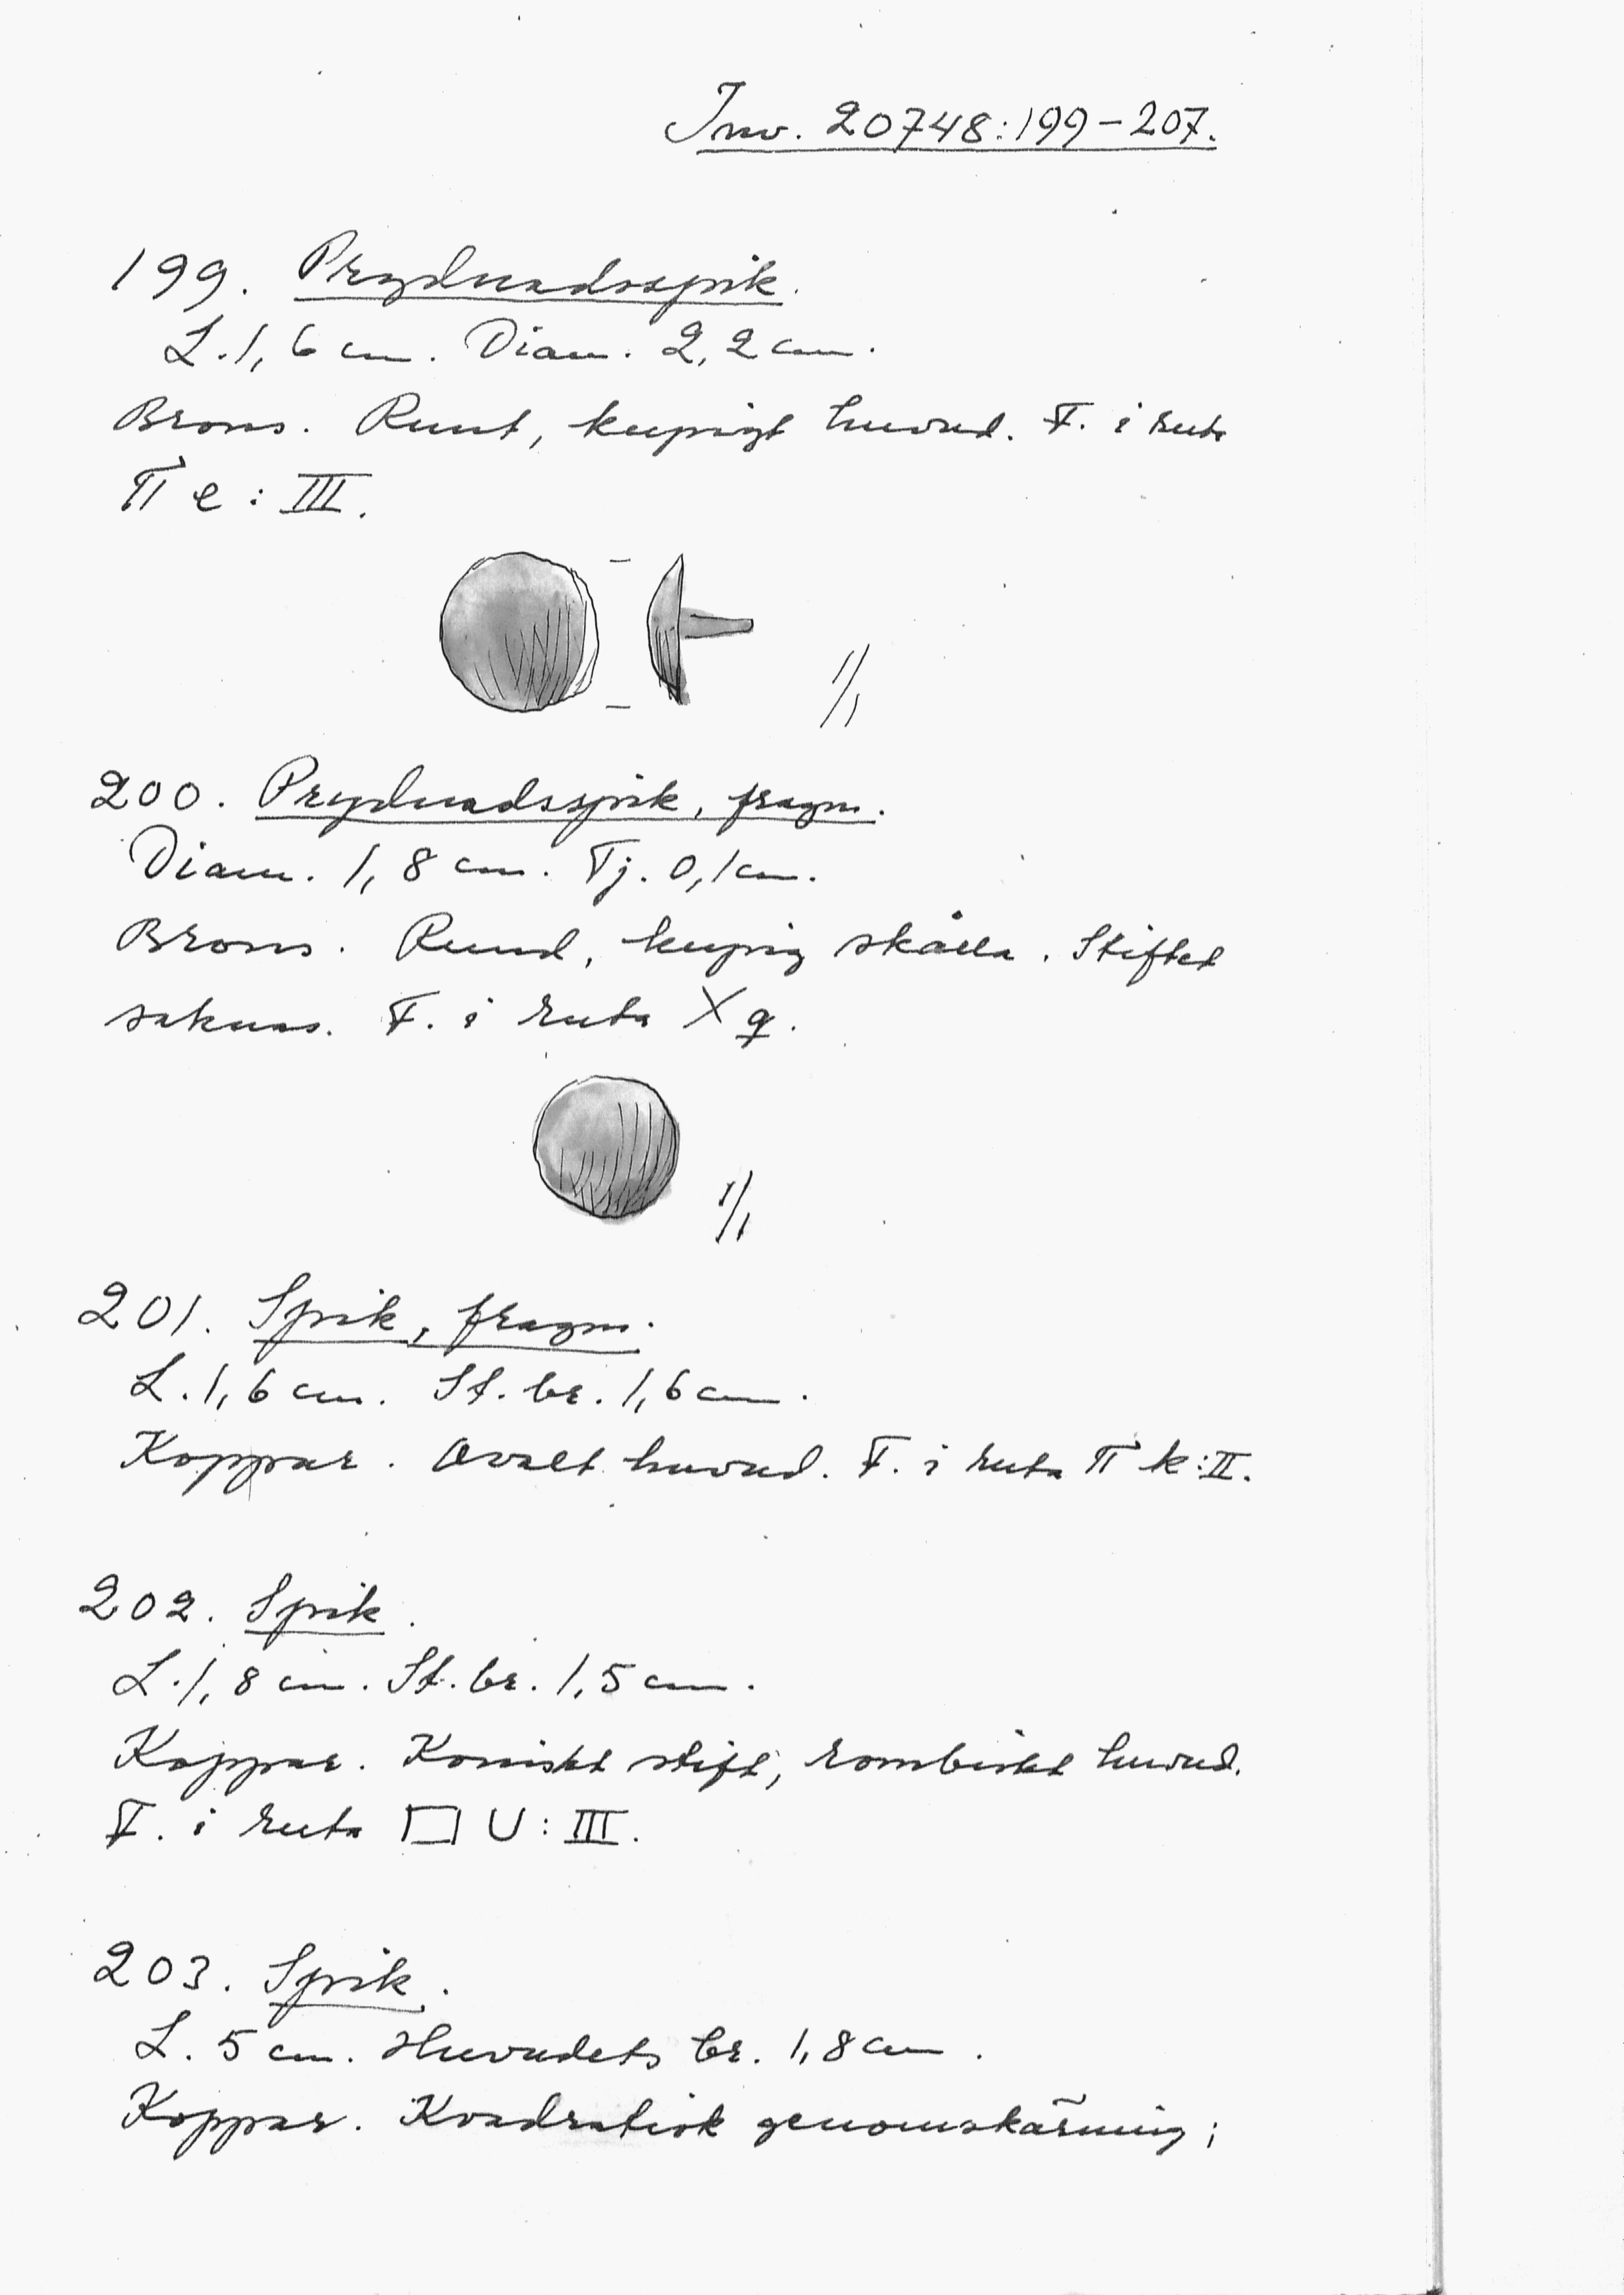 Inv. 20748:199-207.
199. Prydnadsspik.
L. 1,6 cm. Diam. 2,2 cm.
Brons. Runt, kupigt huvud. F. i ruta
π e : III.
1/1
200. Prydnadsspik, fragm.
Diam. 1,8 cm. Tj. 0,1 cm.
Brons. Rund, kupig skålla. Stiftet
saknas. F. i ruta X q.
1/1
201. Spik, fragm.
L. 1,6 cm. St. br. 1,6 cm.
Koppar. Ovalt huvud. F. i ruta π k:II.
202. Spik.
L. 1,8 cm. St. br. 1,5 cm.
Koppar. Koniskt stift, rombiskt huvud.
F. i ruta □ U : III.
203. Spik.
L. 5 cm. Huvudets br. 1,8 cm.
Koppar. Kvadratisk genomskärning;